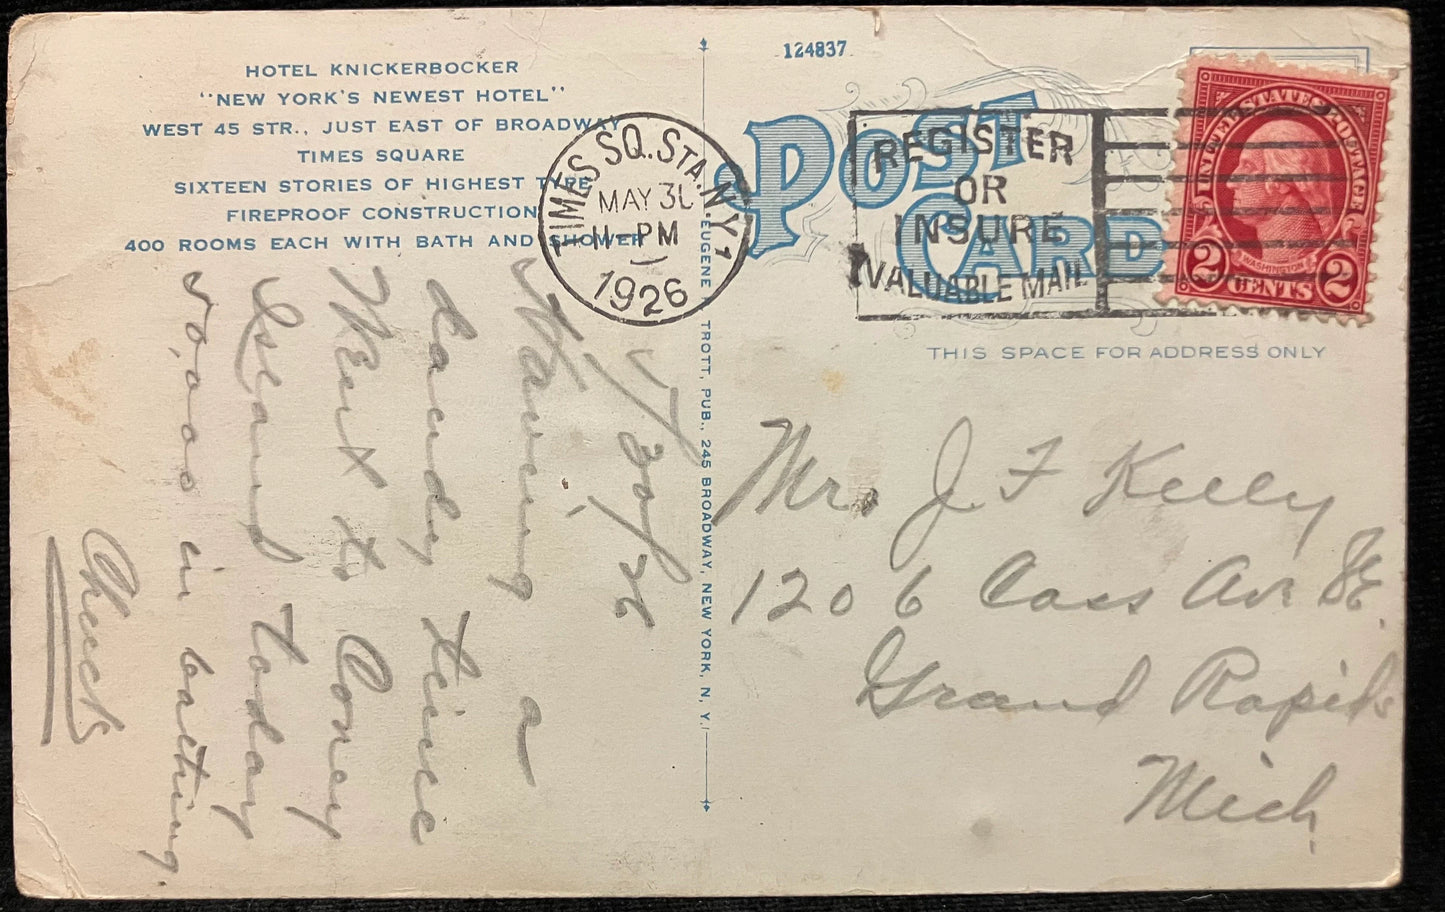 HOTEL KNICKERBOCKER
"NEW YORK'S NEWEST HOTEL"
WEST 45 STR., JUST EAST OF BROADWAY
TIMES SQUARE
SIXTEEN STORIES OF HIGHEST TYPE
FIREPROOF CONSTRUCTION
400 ROOMS EACH WITH BATH AND SHOWER
5/30/26
Having a
dandy time
Went to Coney
Island today
& was in bathing.
Chuck
EUGENE TROTT, PUB., 245 BROADWAY, NEW YORK, N. Y.
124837
POST CARD
TIMES SQ. STA. N.Y. 1
MAY 30
11-PM
1926
REGISTER
OR
INSURE
VALUABLE MAIL
UNITED STATES POSTAGE
WASHINGTON
2 CENTS 2
THIS SPACE FOR ADDRESS ONLY
Mr. J. F Kelly
1206 Cass Ave SE.
Grand Rapids
Mich.